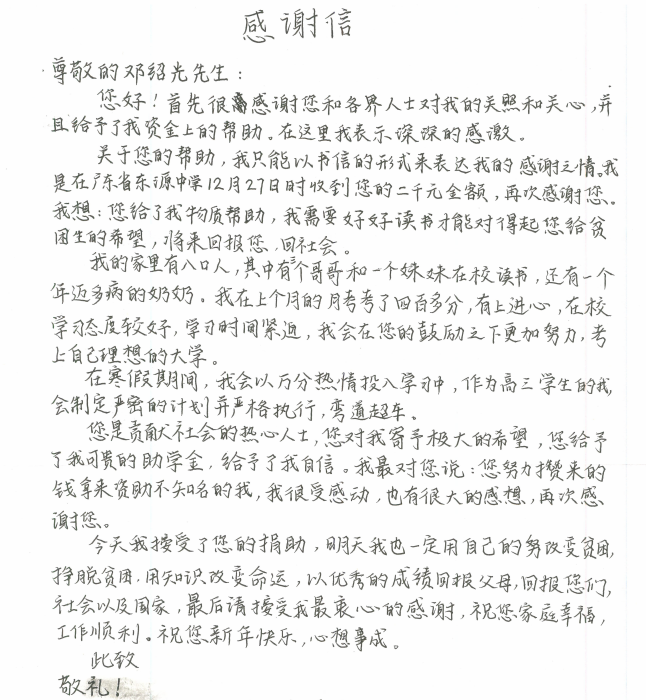 感谢信
尊敬的邓绍光先生：
您好！首先很感谢您和各界人士对我的关照和关心，并
且给予了我资金上的帮助。在这里我表示深深的感激。
关于您的帮助，我只能以书信的形式来表达我的感谢之情。我
是在广东省东源中学12月27日时收到您的二千元金额，再次感谢您。
我想：您给了我物质帮助，我需要好好读书才能对得起您给贫
困生的希望，将来回报您，回社会。
我的家里有八口人，其中有三个哥哥和一个妹妹在校读书，还有一个
年迈多病的奶奶。我在上个月的月考考了四百多分，有上进心，在校
学习态度较好，学习时间紧迫，我会在您的鼓励之下更加努力，考
上自己理想的大学。
在寒假期间，我会以万分热情投入学习中，作为高三学生的我，
会制定严密的计划并严格执行，弯道超车。
您是贡献社会的热心人士，您对我寄予极大的希望，您给予
了我可贵的助学金，给予了我自信。我最对您说：您努力攒来的
钱拿来资助不知名的我，我很受感动，也有很大的感想，再次感
谢您。
今天我接受了您的捐助，明天我也一定用自己的努改变贫困，
挣脱贫困，用知识改变命运，以优秀的成绩回报父母，回报您们，
社会以及国家，最后请接受我最衷心的感谢，祝您家庭幸福，
工作顺利。祝您新年快乐，心想事成。
此致
敬礼！